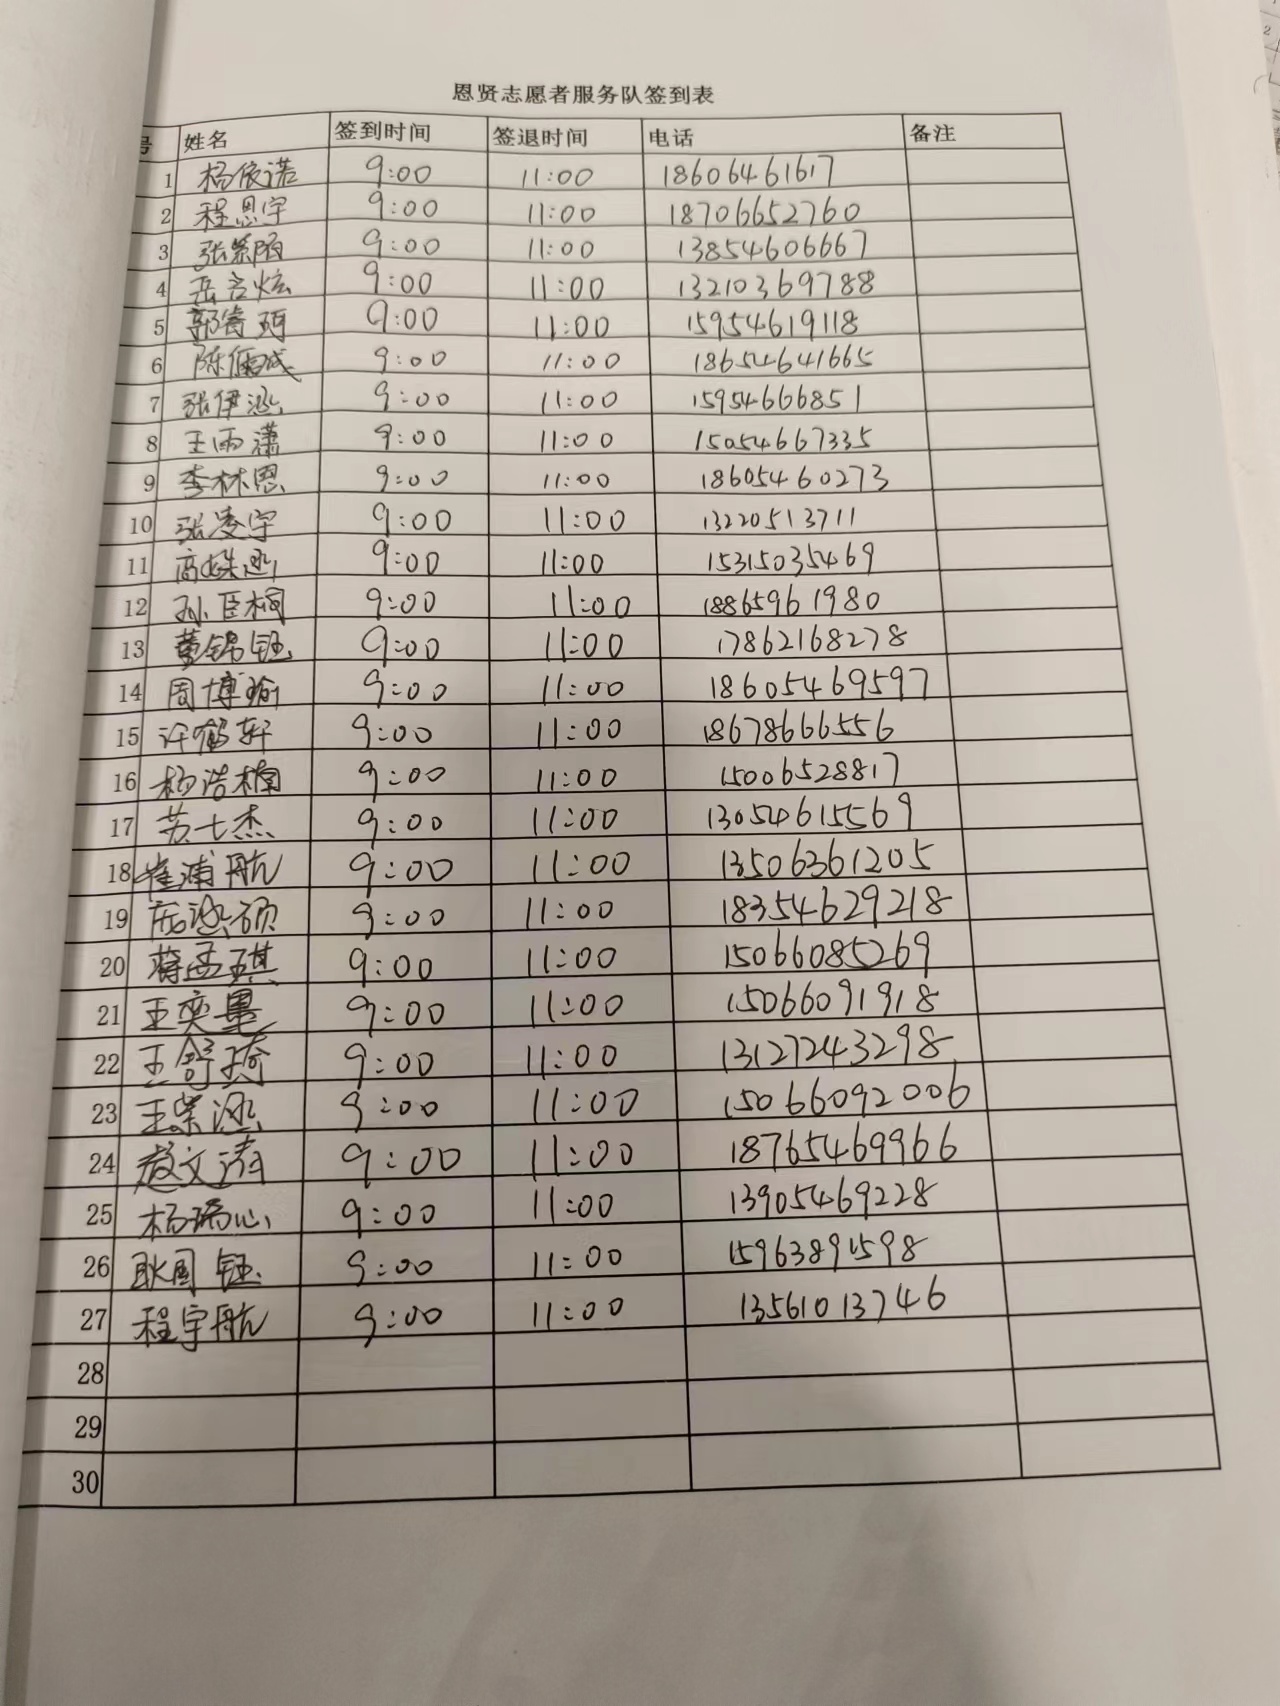 恩贤志愿者服务队签到表
号 姓名 签到时间 签退时间 电话 备注
1 杨依诺 9:00 11:00 18606461617
2 程思宇 9:00 11:00 18706652760
3 张 9:00 11:00 13854606667
4 岳言炫 9:00 11:00 13210369788
5 郭 9:00 11:00 15954619118
6 陈儒成 9:00 11:00 18654641665
7 张伊涵 9:00 11:00 15954666851
8 王雨潇 9:00 11:00 15054667335
9 李林恩 9:00 11:00 18605460273
10 张凌宇 9:00 11:00 13220513711
11 高 9:00 11:00 15315035469
12 孙臣桐 9:00 11:00 18865961980
13 董锦钰 9:00 11:00 17862168278
14 周博瑜 9:00 11:00 18605469597
15 许鹤轩 9:00 11:00 18678666556
16 杨浩楠 9:00 11:00 15006528817
17 苏士杰 9:00 11:00 13054615569
18 崔浦航 9:00 11:00 13506361205
19 硕 9:00 11:00 18354629218
20 蒋孟琪 9:00 11:00 15066085269
21 王奕 9:00 11:00 15066091918
22 王舒琦 9:00 11:00 13127243298
23 王紫涵 9:00 11:00 15066092006
24 赵文涛 9:00 11:00 18765469966
25 杨瑞心 9:00 11:00 13905469228
26 耿国钰 9:00 11:00 15963891598
27 程宇航 9:00 11:00 13561013746
28
29
30